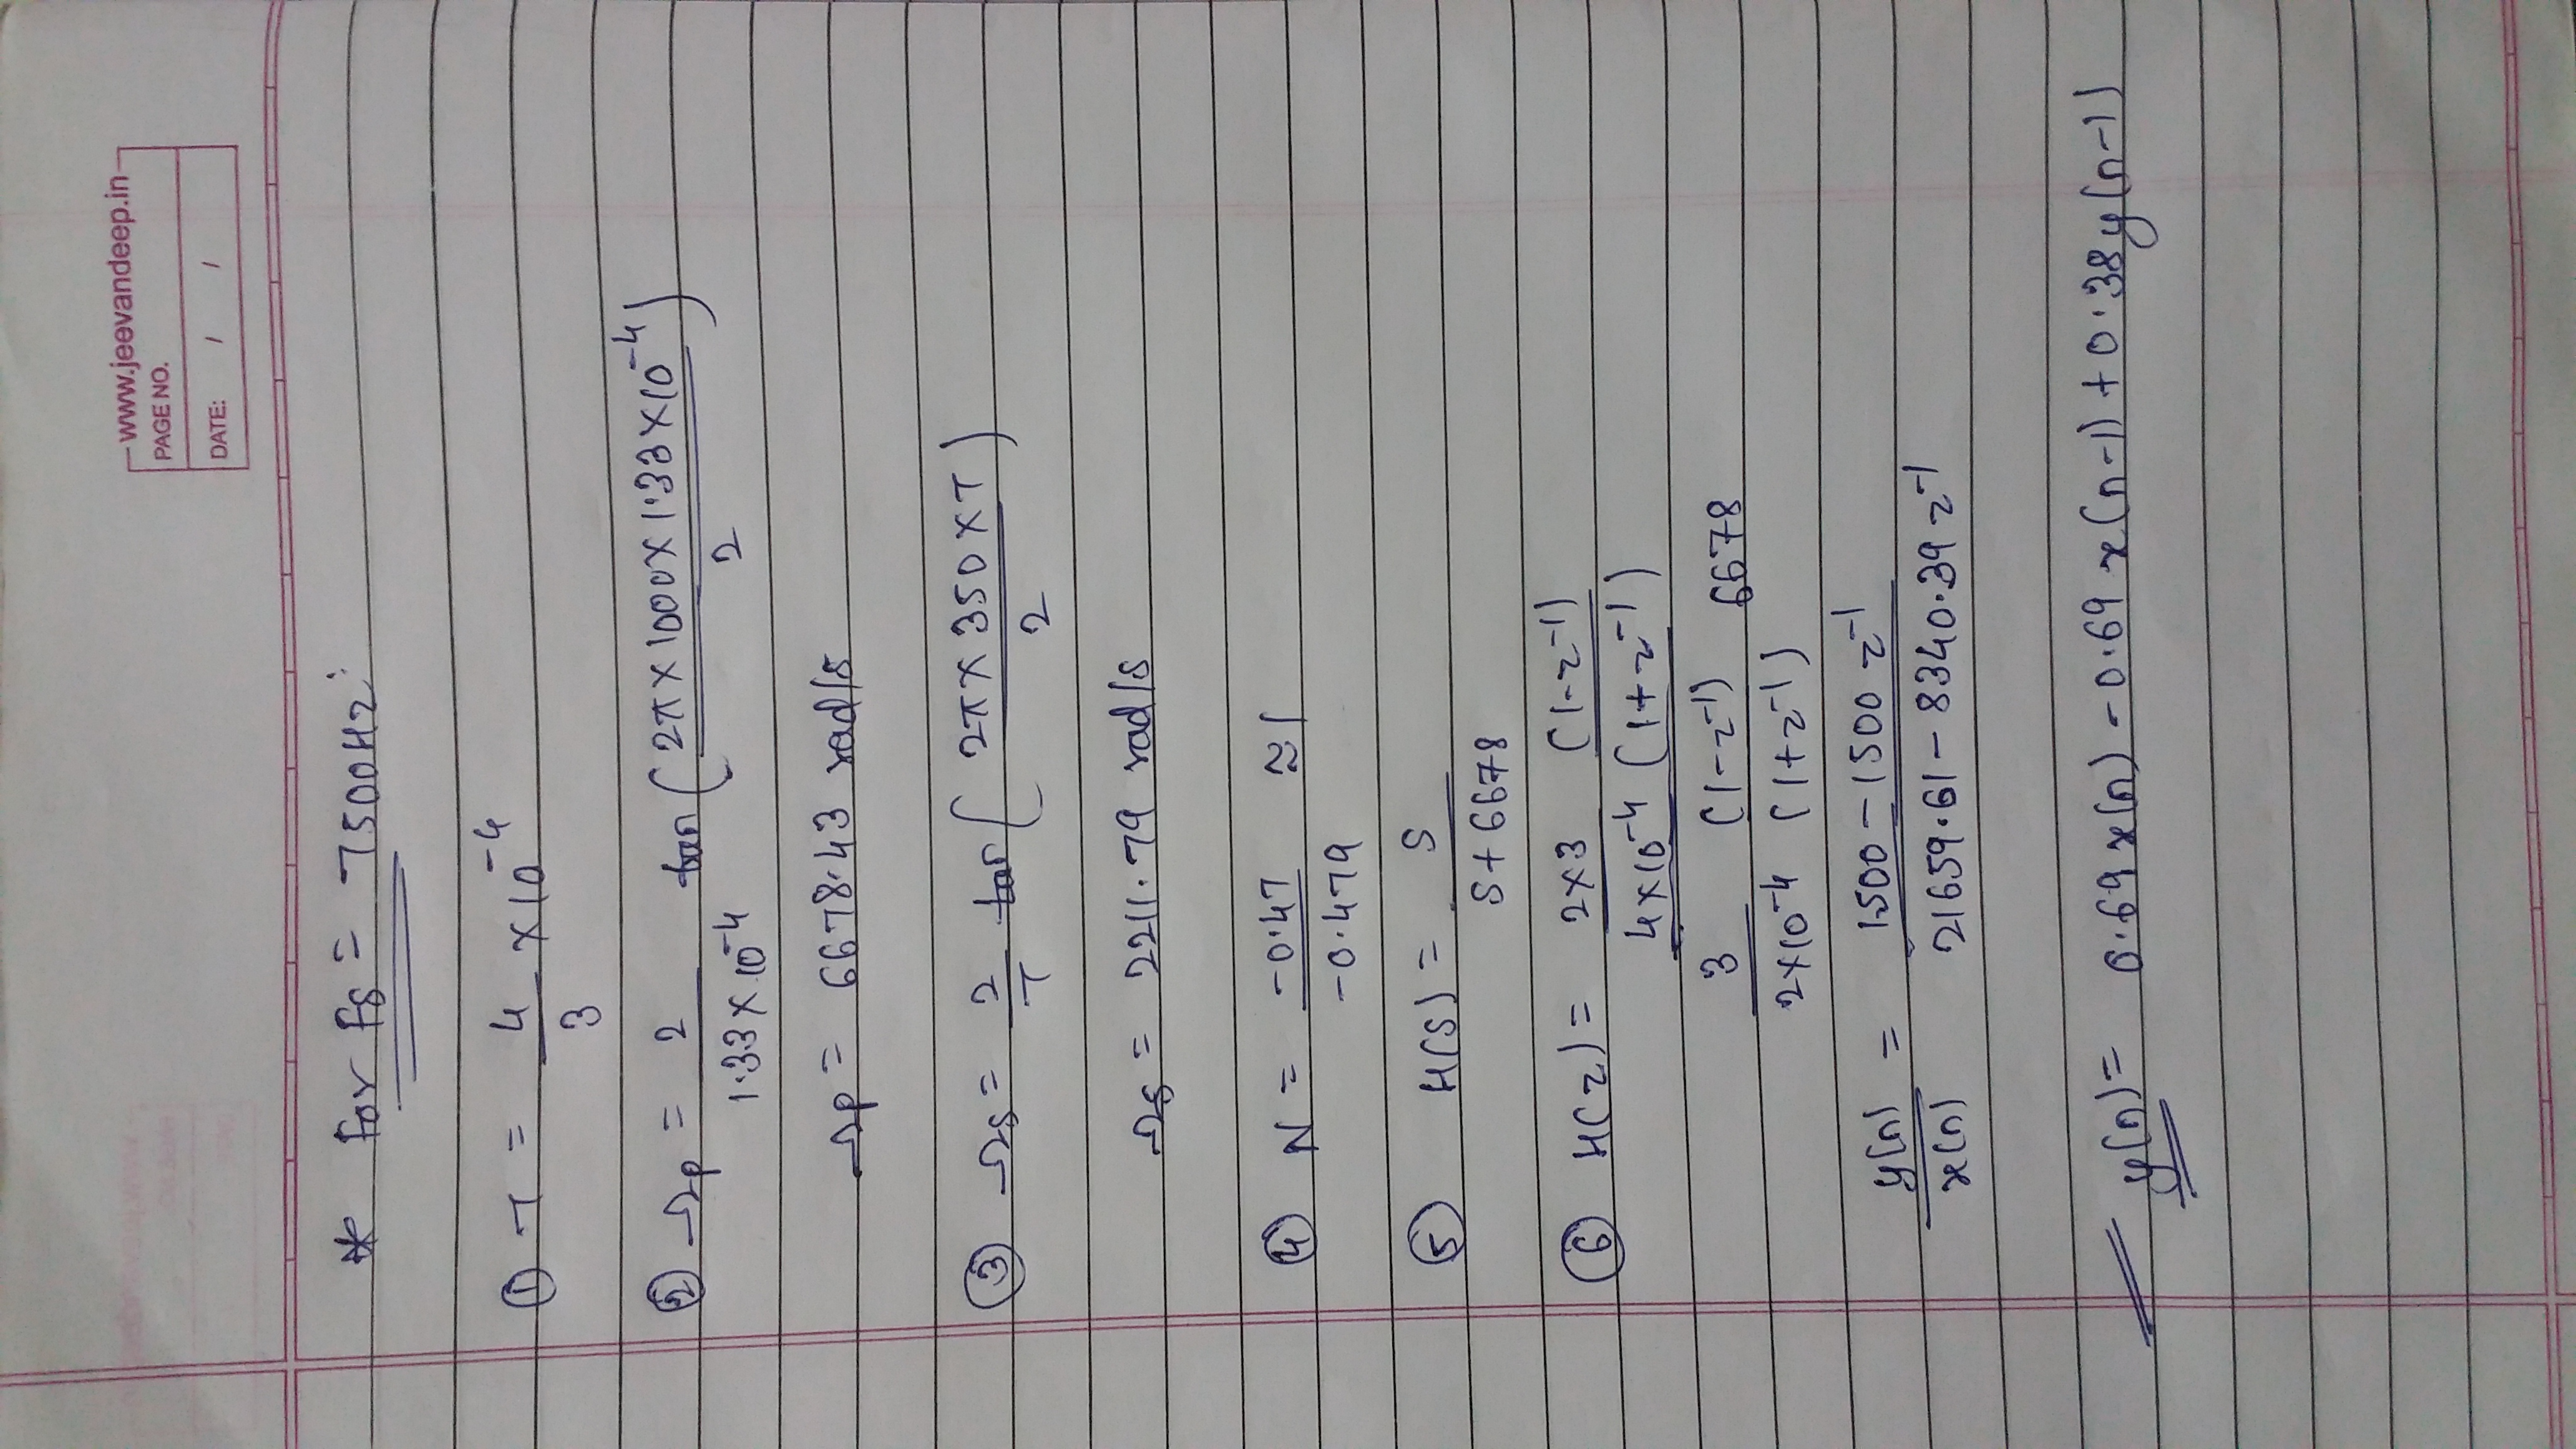 www.jeevandeep.in
PAGE NO.
DATE: / /
* For Fs = 7500Hz:
① T = 4/3 × 10⁻⁴
② Ωp = 2/(1.33 × 10⁻⁴) tan(2π × 1000 × 1.33 × 10⁻⁴/2)
Ωp = 6678.43 rad/s
③ Ωs = 2/T tan(2π × 350 × T/2)
Ωs = 2211.79 rad/s
④ N = -0.47/-0.479 ≈ 1
⑤ H(s) = s/(s + 6678)
⑥ H(z) = 2×3/4×10⁻⁴ (1-z⁻¹)/(1+z⁻¹)
3/2×10⁻⁴ (1-z⁻¹)/(1+z⁻¹) 6678
y(n)/x(n) = 1500 - 1500 z⁻¹/21659.61 - 8340.39 z⁻¹
y(n) = 0.69 x(n) - 0.69 x(n-1) + 0.38 y(n-1)